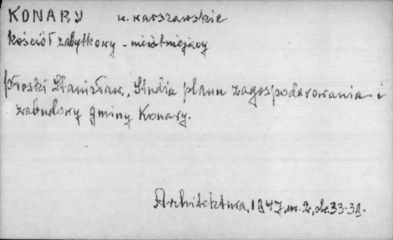 KONARY w. warszawskie
kościół zabytkowy - nieistniejący
Płoski Stanisław, Studia planu zagospodarowania i
zabudowy gminy Konary.
Architektura, 1947, nr. 2, str. 33-38.